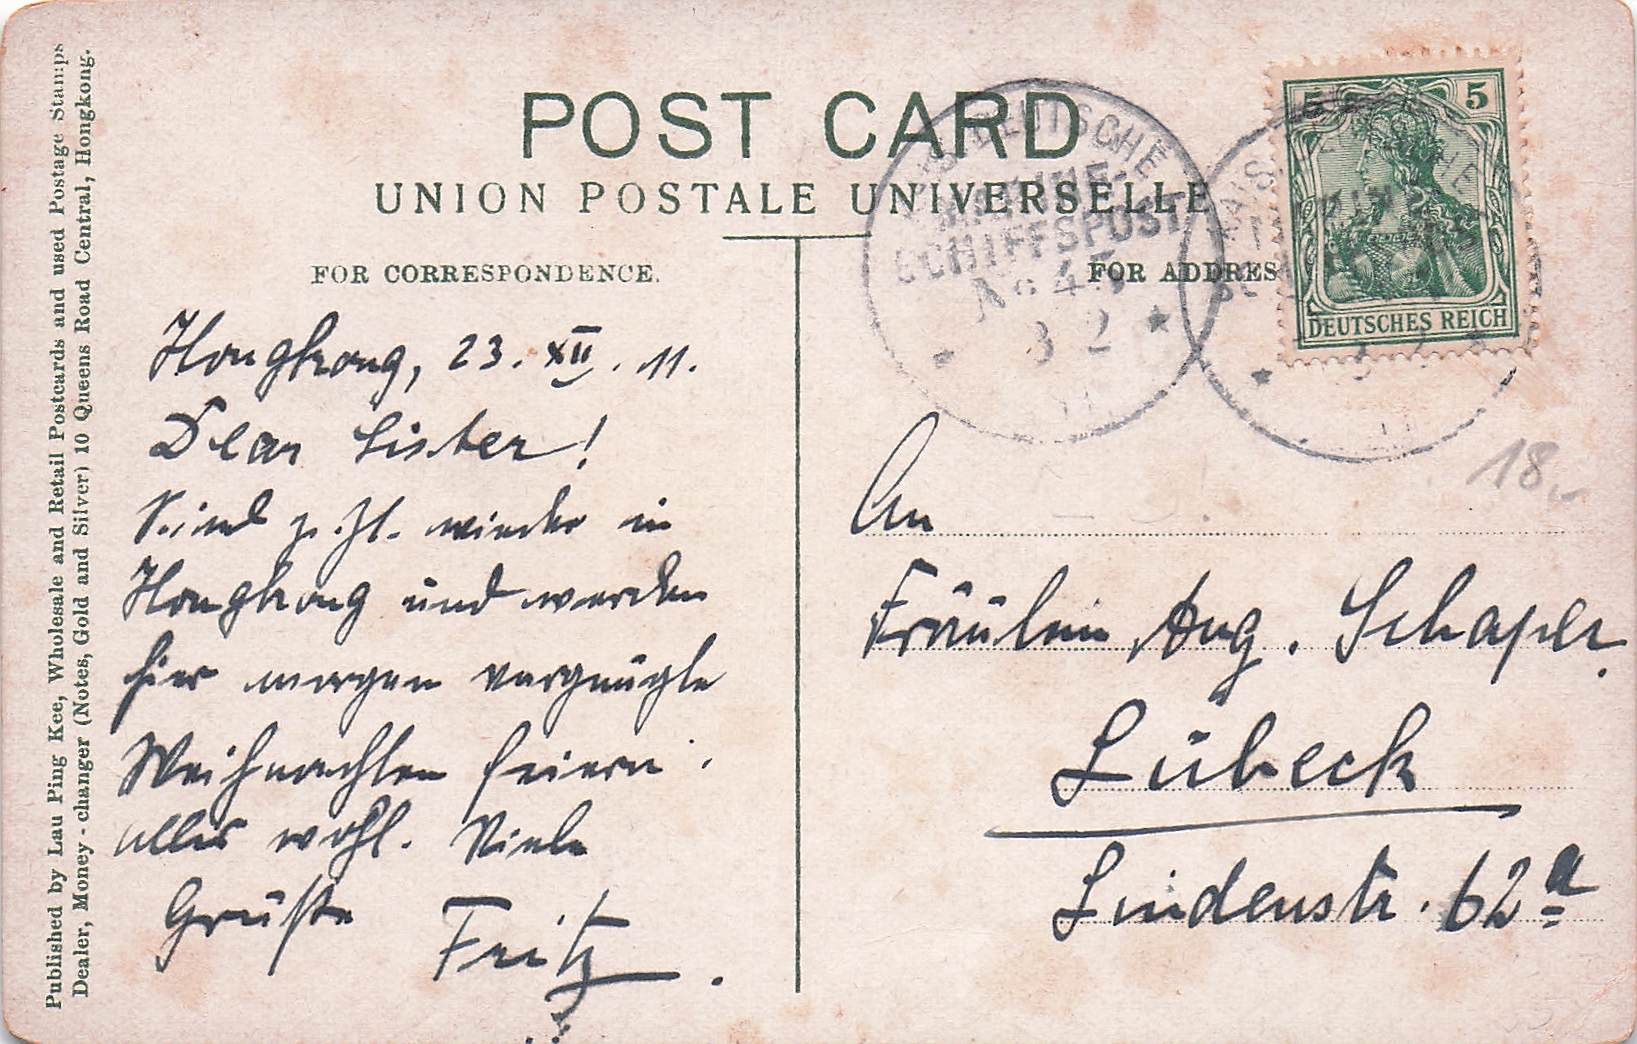 POST CARD
UNION POSTALE UNIVERSELLE
FOR CORRESPONDENCE.
FOR ADDRES
Published by Lau Ping Kee, Wholesale and Retail Postcards and used Postage Stamps
Dealer, Money-changer (Notes, Gold and Silver) 10 Queens Road Central, Hongkong.
Hongkong, 23. XII. 11.
Dear Sister!
Sind z. Zt. wieder in
Hongkong und werden
hier morgen vergnügte
Weihnachten feiern.
alles wohl. Viele
Grüße Fritz.
DEUTSCHE
MARINE-
SCHIFFSPOST
No 45
3 2
5 5
DEUTSCHES REICH
18.-
An
Fräulein Aug. Schaper.
Lübeck
Lindenstr. 62a